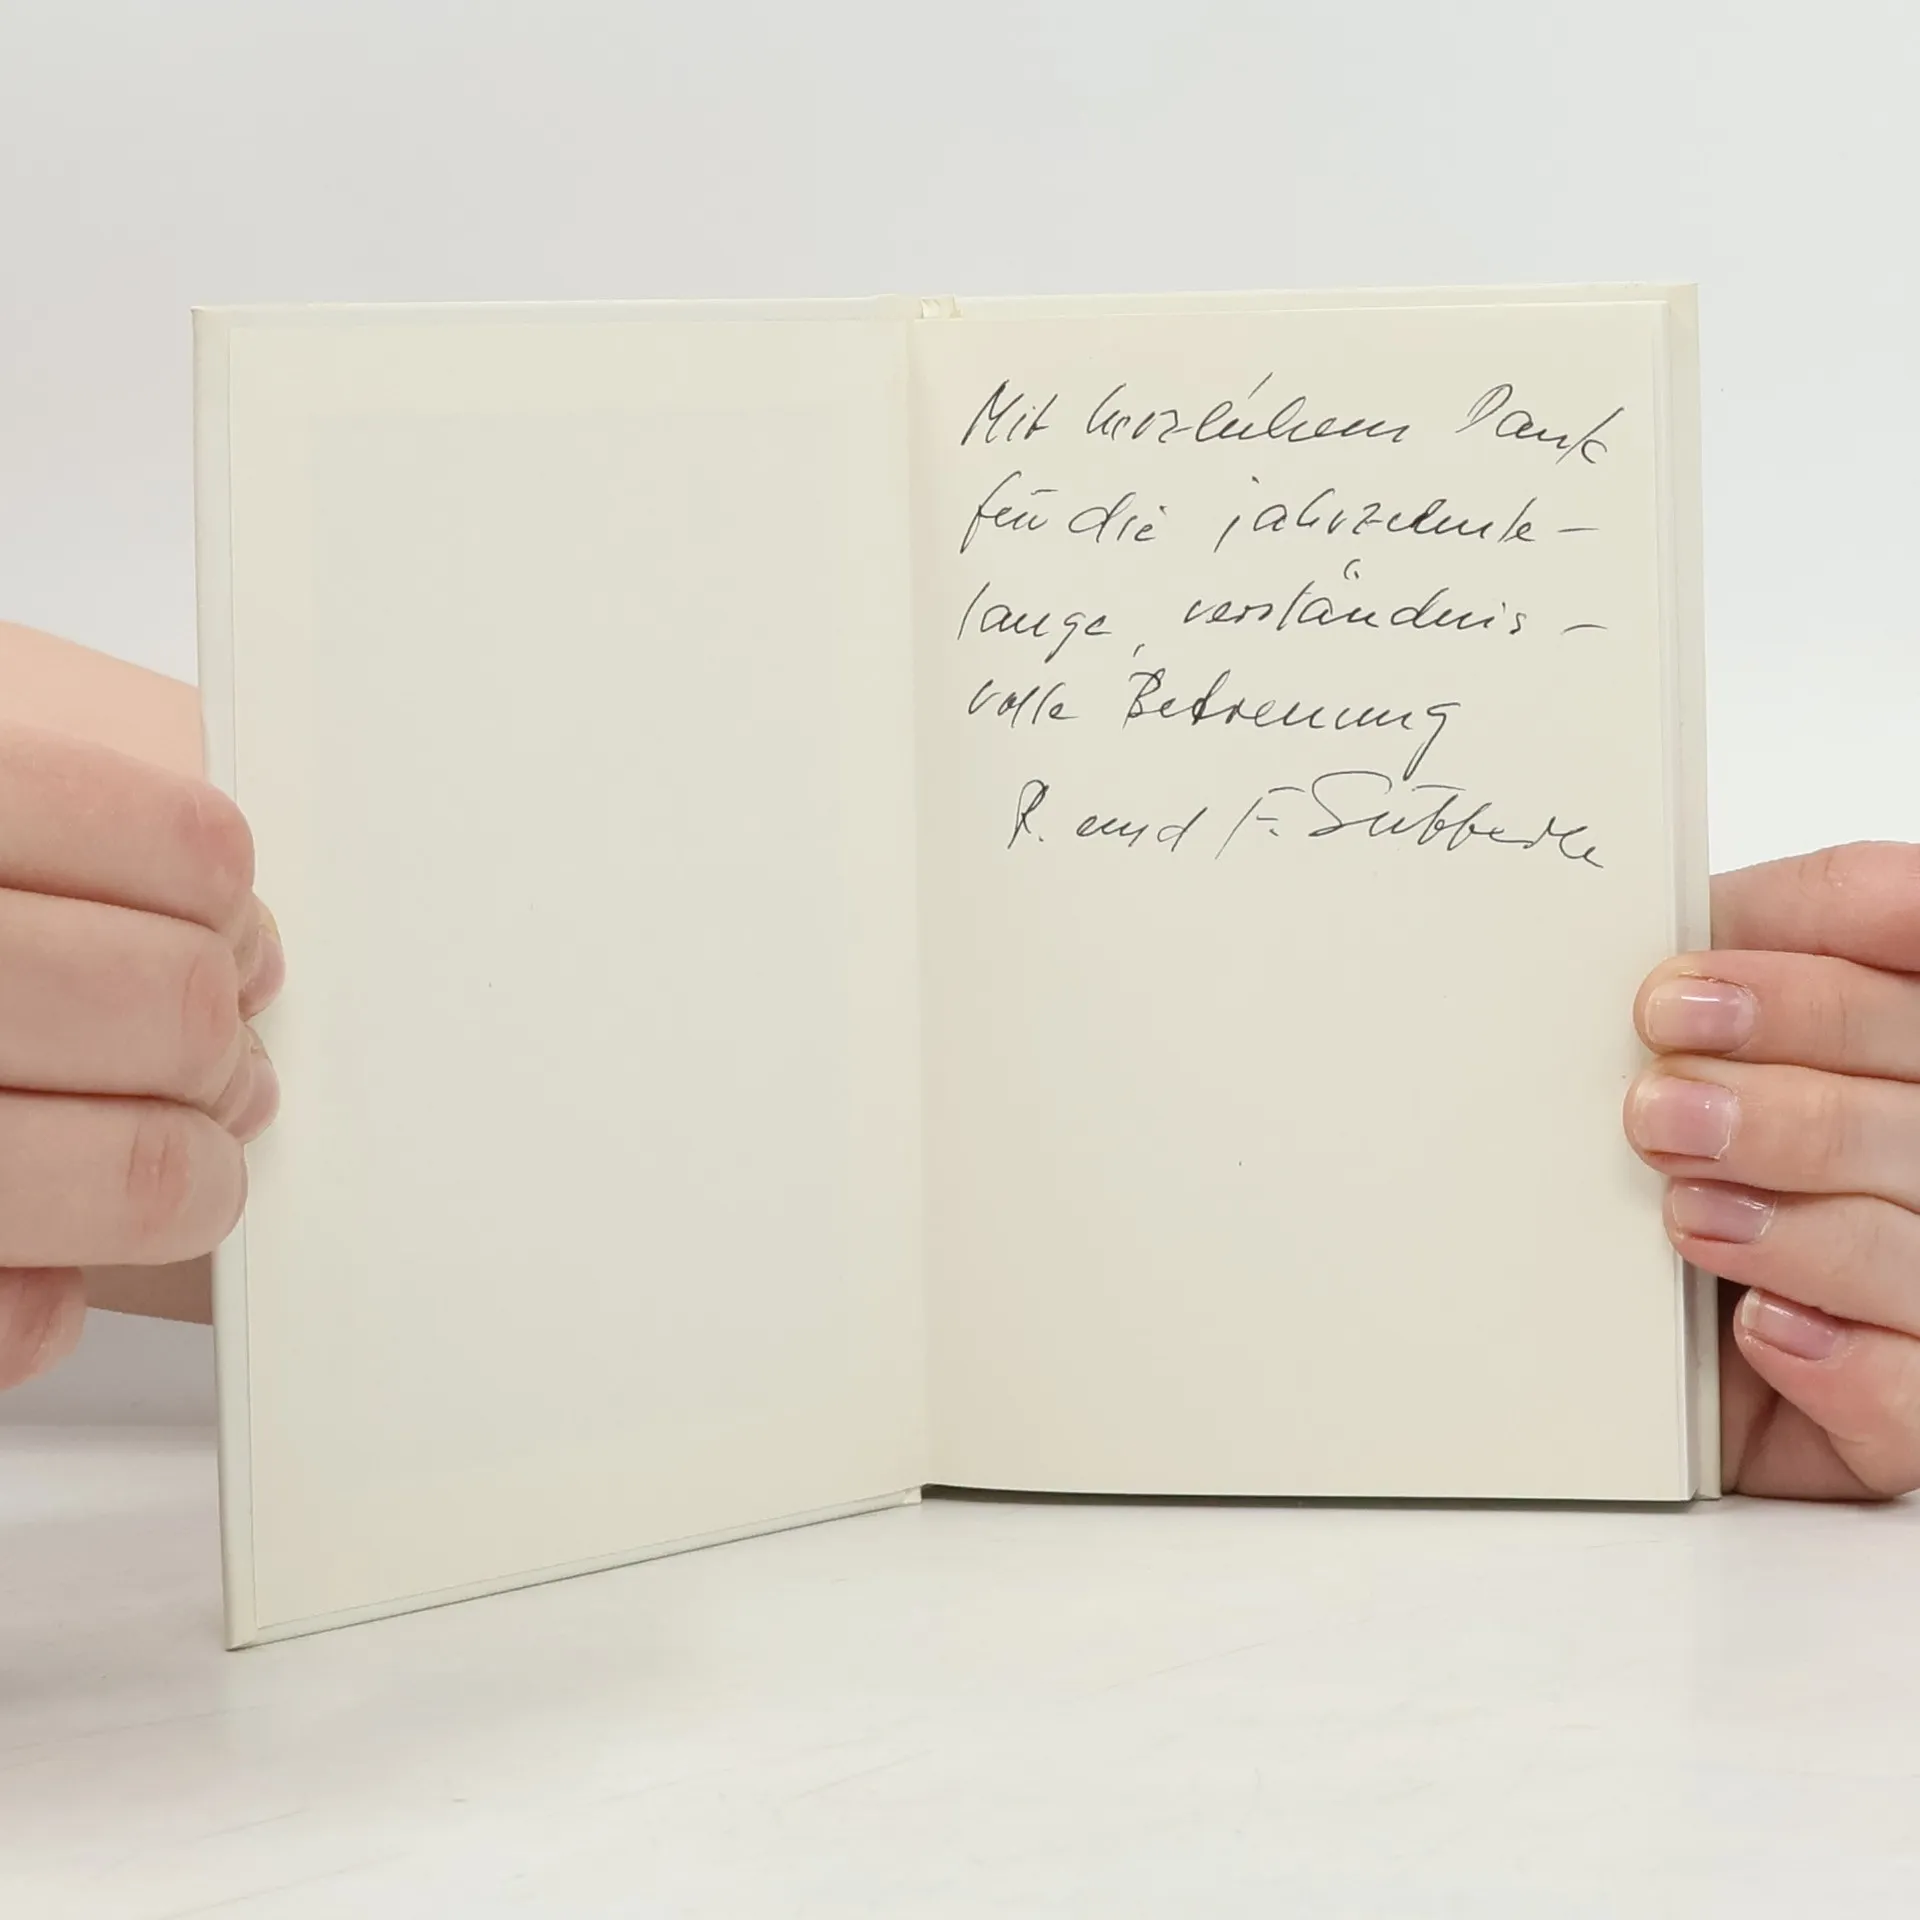 Mit herzlichem Dank
für die jahrzehnte-
lange, verständnis-
volle Betreuung
R. und F.